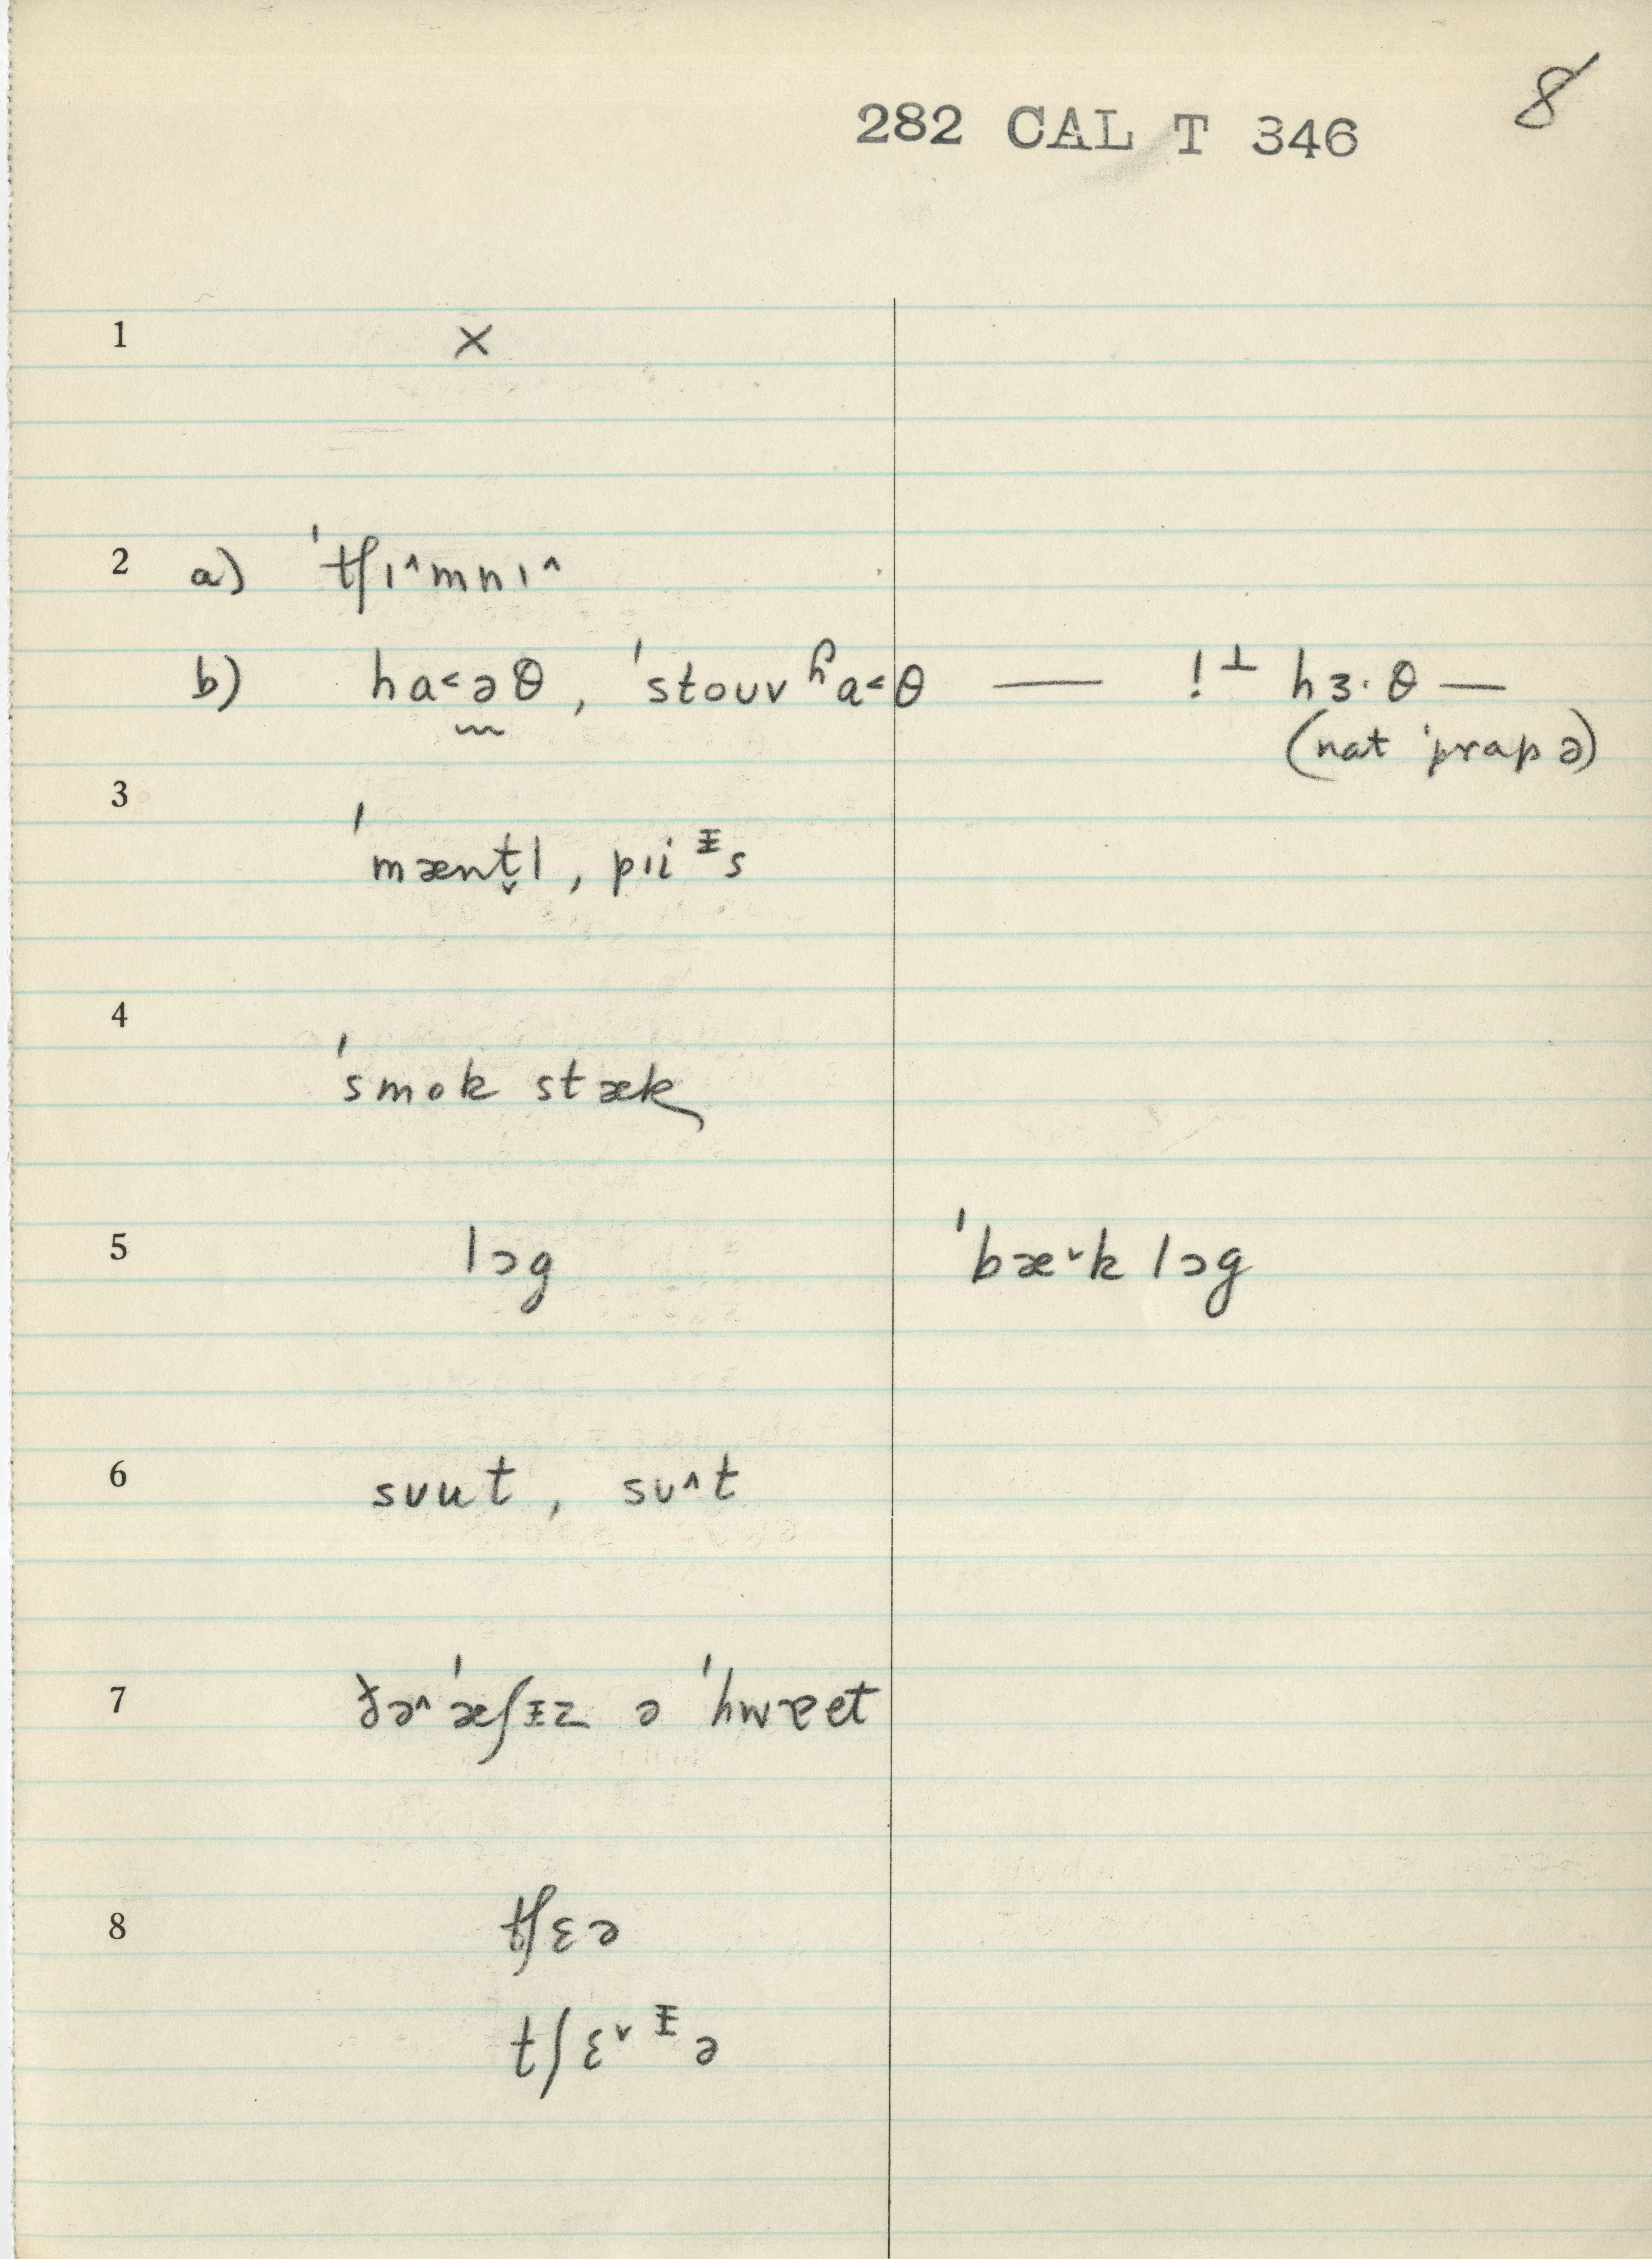 8
282 CAL T 346
1 ×
2 a) ˈtʃɪ^mnɪ^
b) ha˂ə̰θ, ˈstouv ɦa˂θ — !⊥ hɜ·θ —
(nat ˈprapə)
3
ˈmæntฺ̬l, pɪiᵻs
4
ˈsmok stæk
5 lɔg ˈbæ˅k lɔg
6 sᴜut, sᴜ^t
7 ðə^ ˈæʃᵻz ə ˈhwɐet
8 tʃɛə
tʃɛ˅ᵻə